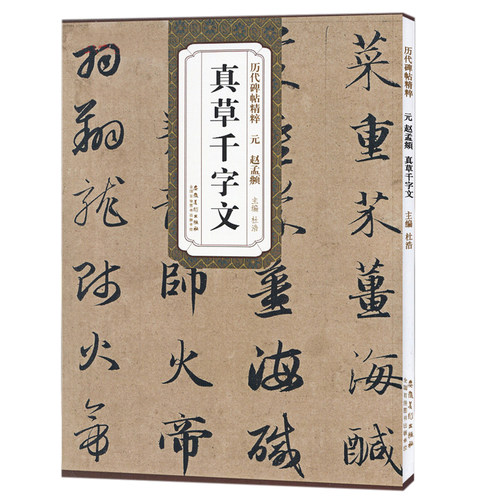 菜重芥薑海鹹
薑海鹹
師火帝
羽翔龍師火帝
历代碑帖精粹 元 赵孟頫
真草千字文
主编 杜浩
安徽美术出版社
历代碑帖精粹 元 赵孟頫 真草千字文 主编 杜浩
安徽美术出版社